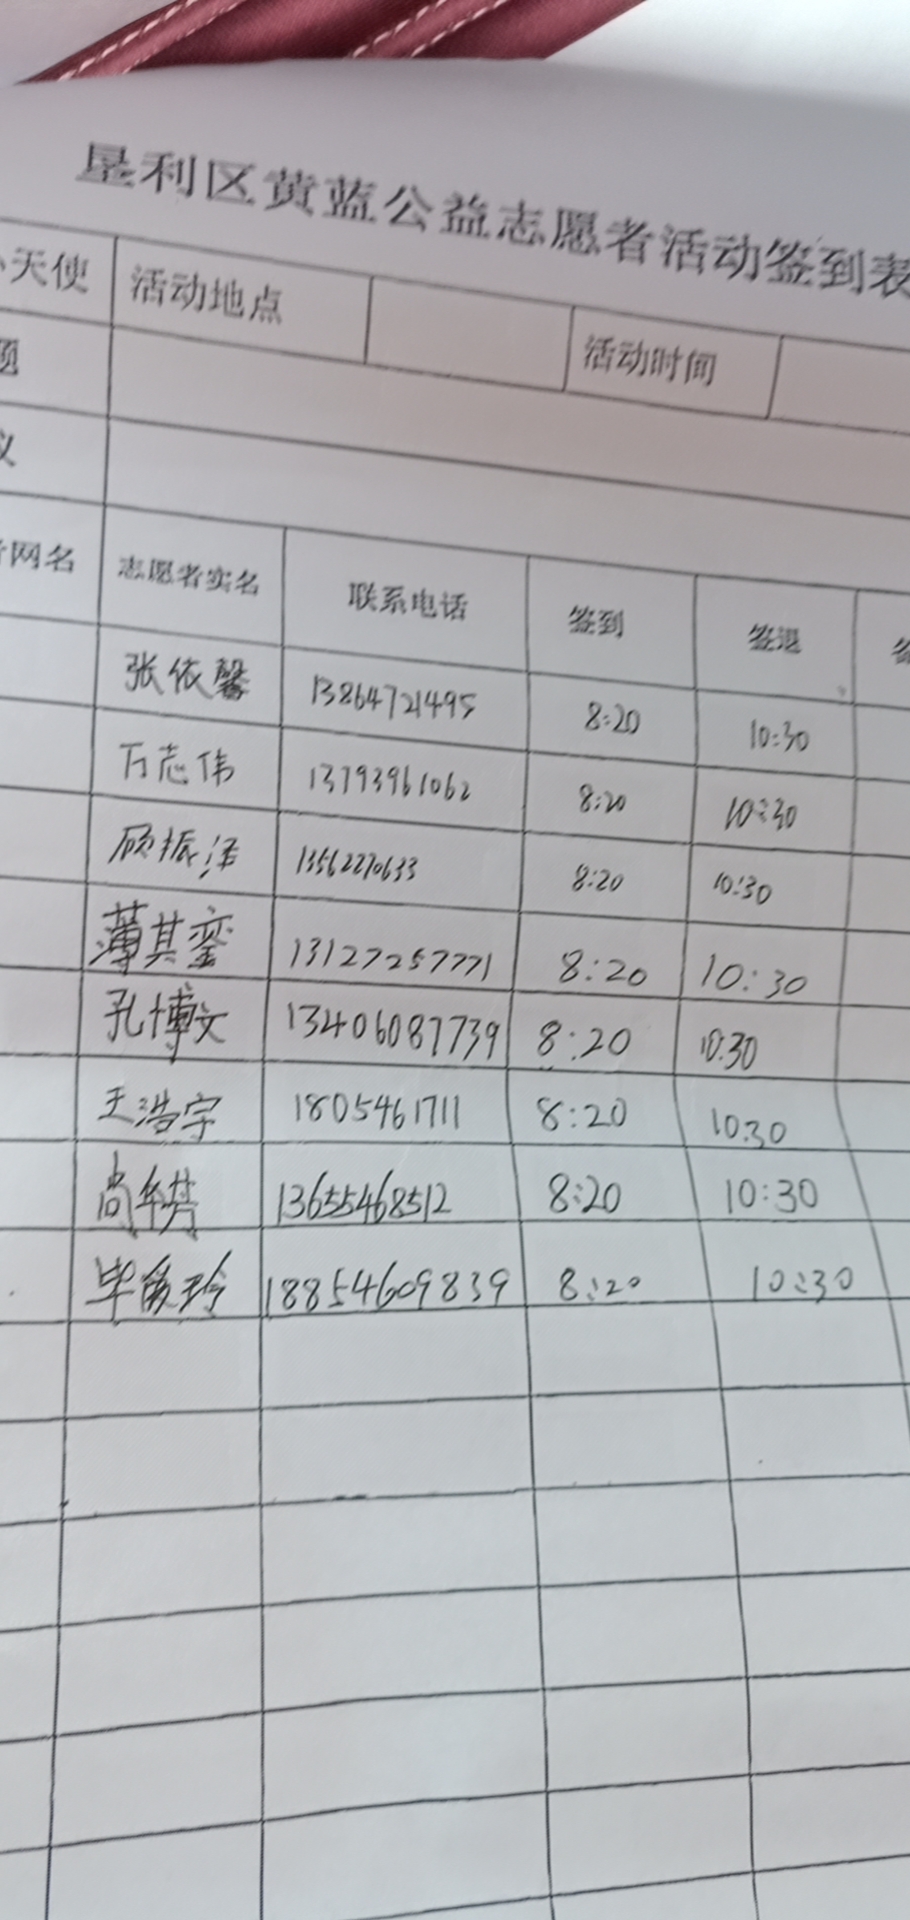 垦利区黄蓝公益志愿者活动签到表
天使 活动地点 活动时间
题
议
网名 志愿者实名 联系电话 签到 签退
张依馨 13864721495 8:20 10:30
万志伟 13793961062 8:20 10:30
顾振泽 13562270633 8:20 10:30
薄其銮 13127257771 8:20 10:30
孔博文 13406087739 8:20 10:30
王浩宇 1805461711 8:20 10:30
尚 13655468512 8:20 10:30
毕 18854609839 8:20 10:30